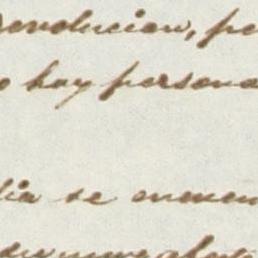 revolucion, pe
o hay persona
lia se encuen